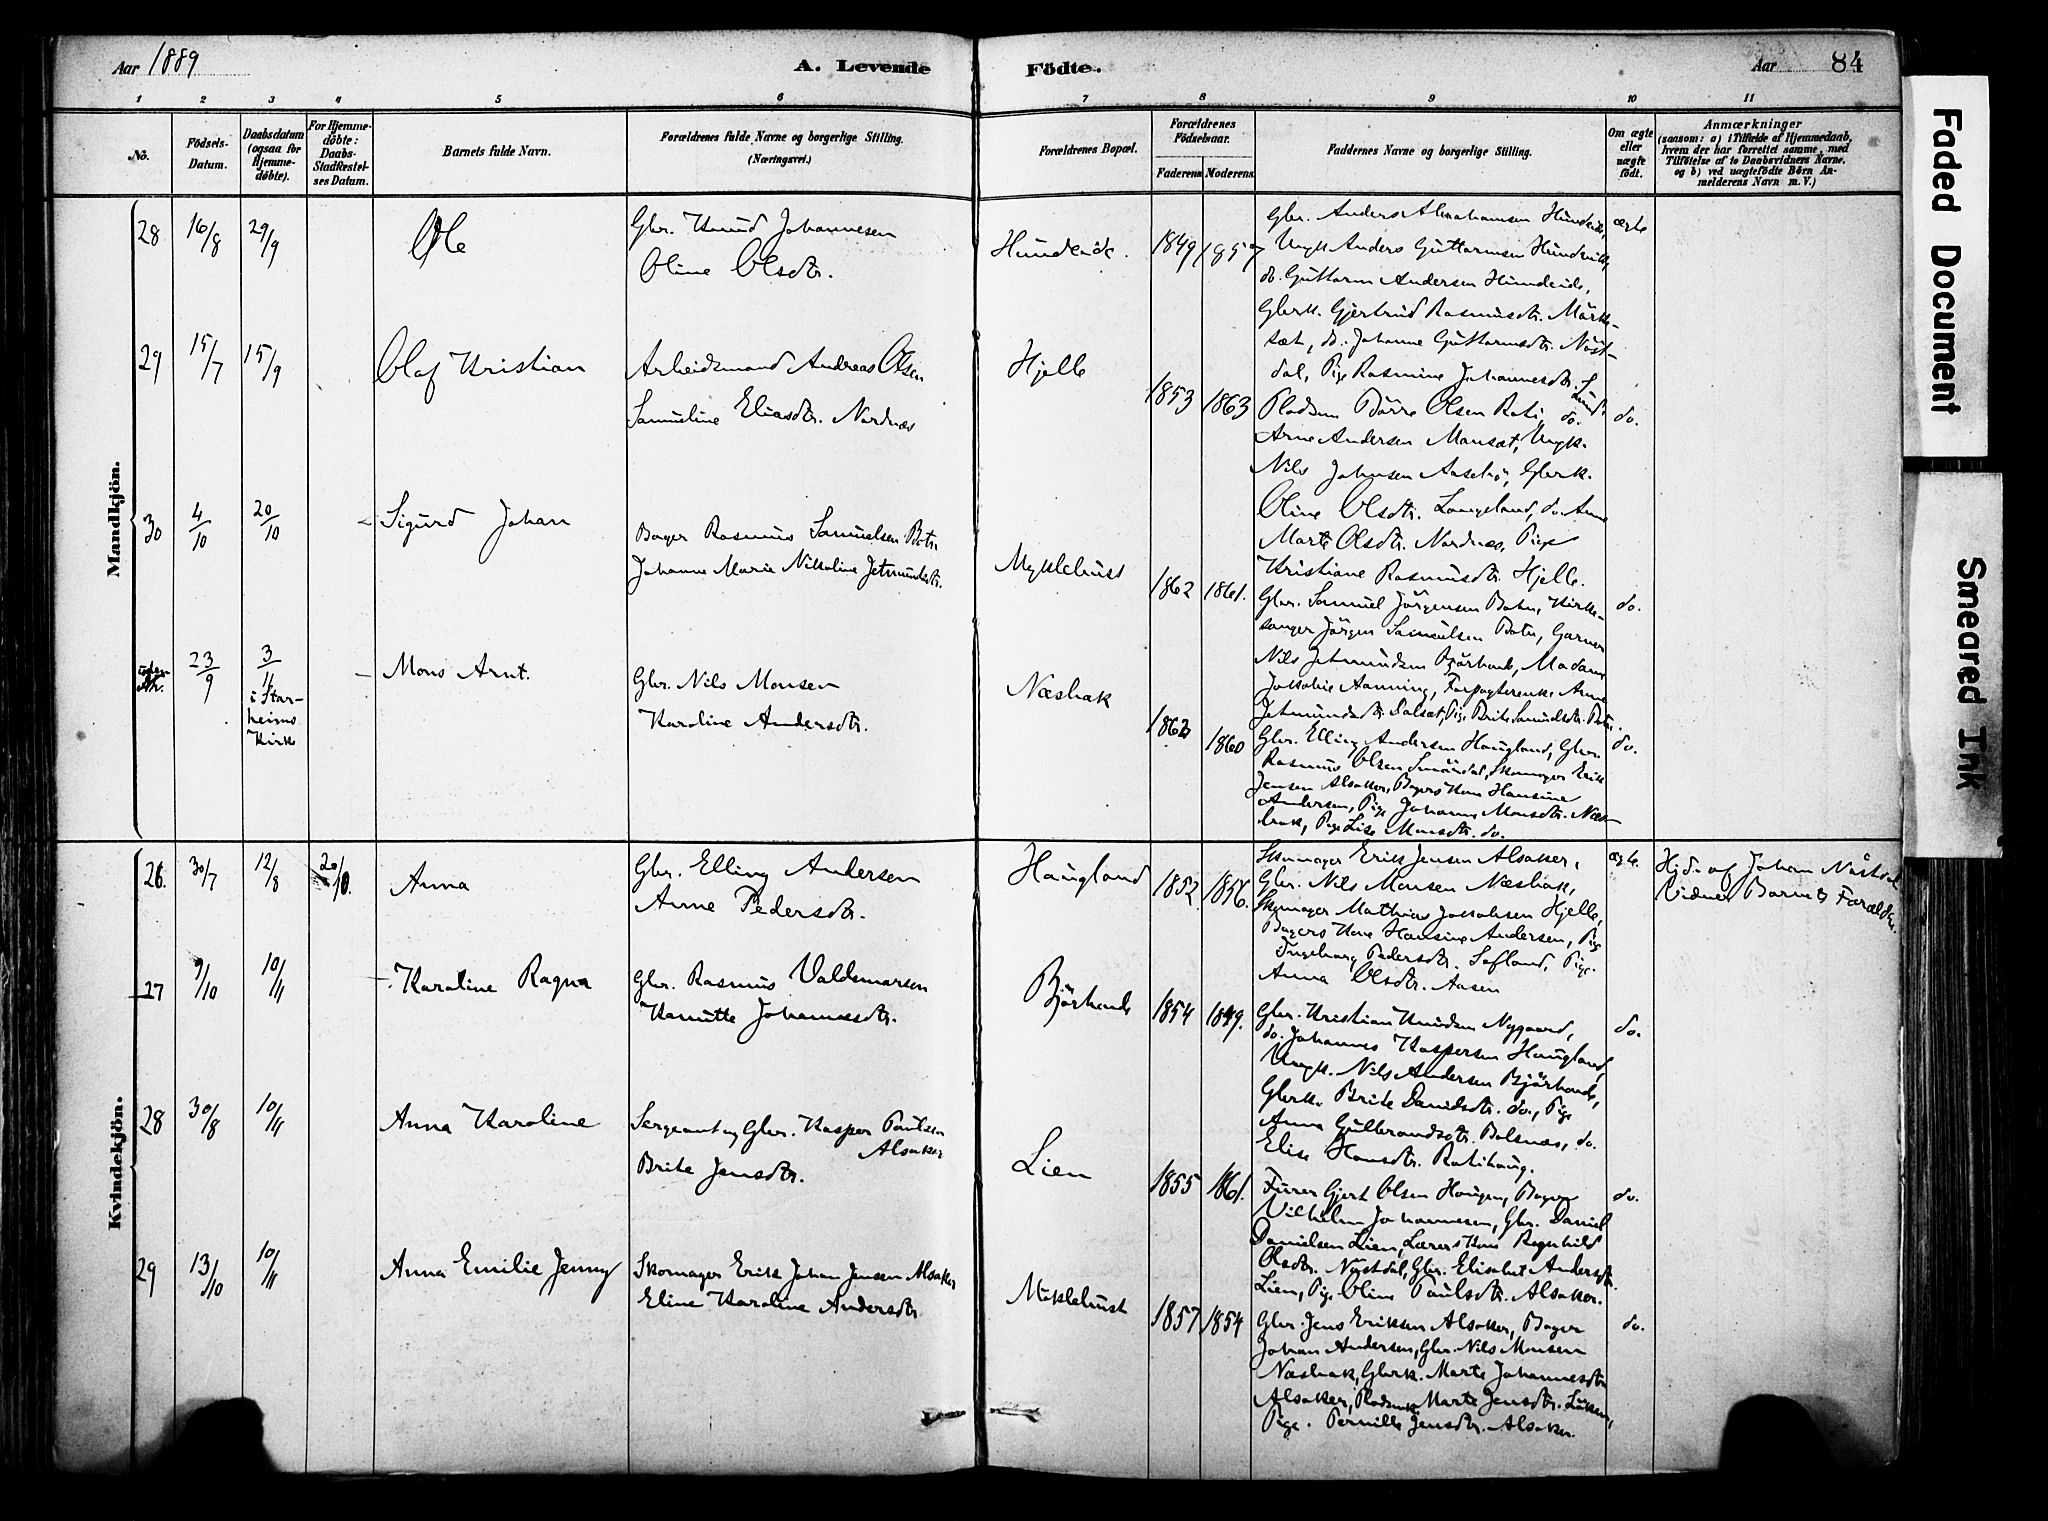 Aar 1889
A. Levende
Födte.
Aar
84
1 2 3 4 5 6 7 8 9 10 11
No.
Födsels-
Datum.
Daabsdatum
(ogsaa for
Hjemme-
döbte).
For Hjemme-
döbte:
Daabs-
Stadfæstel-
ses Datum.
Barnets fulde Navn.
Forældrenes fulde Navne og borgerlige Stilling.
(Næringsvei.)
Forældrenes Bopæl.
Forældrenes
Födselsaar.
Faderens
Moderens
Faddernes Navne og borgerlige Stilling.
Om ægte
eller
uægte
födt.
Anmærkninger
(saasom: a) i Tilfælde af Hjemmedaab,
hvem der har forrettet samme, med
Tilföielse af to Daabsvidners Navne,
og b) ved uægtefödte Börn An-
melderens Navn m. V.)
Mandkjön.
28
16/8
29/9
Ole
Gbr. Knud Johannesen
Oline Olsdtr.
Hundeide.
1849
1857
Gbr. Anders Abrahamsen Hundeide,
Ungk. Anders Guttormsen Hundeide,
do. Guttorm Andersen Hundeide,
Gbrk. Gjertrud Rasmusdtr. Mörk-
sæt, do. Johanne Guttormsdtr. Nöst-
dal, Pige Rasmine Johannesdtr.
ægte
29
15/7
15/9
Olaf Kristian
Arbeidsmand Andreas Olsen
Samueline Eliasdtr. Nordnæs
Hjelle
1853
1863
Pladsm. Börre Olsen Roti, do.
Arne Andersen Monsæt, Ungk.
Nils Johnsen Aasebö, Gbrk.
Oline Olsdtr. Langeland, do. Anne
Marte Olsdtr. Nordnæs, Pige
Kristiane Rasmusdtr. Hjelle.
do.
30
4/10
20/10
Sigurd Johan
Bager Rasmus Samuelsen Botn
Johanne Marie Nikoline Jetmundsdtr.
Myklebust
1862
1861.
Gbr. Samuel Jörgensen Botn, Kirke-
sanger Jörgen Samuelsen Botn, Garver
Nils Jetmundsen Bjørhovde, Madam
Jakobie Aanning, Forpagterenke Anne
Jetmundsdtr. Dalsæt, Pige Brite Samuelsdtr. Botn.
do.
uden
Nr.
23/9
3/11
i Star-
heims
Kirke
Mons Arnt.
Gbr. Nils Monsen
Karoline Andersdtr.
Næsbak
1862
1860
Gbr. Elling Andersen Haugland, Gbr.
Rasmus Olsen Smördal, Skomager Erik
Jensen Alsaker, Bagers Kone Hansine
Andersen, Pige Johanne Monsdtr. Næs-
bak, Pige Lise Monsdtr. do.
do.
Kvindekjön.
26.
30/7
12/8
20/10.
Anna
Gbr. Elling Andersen
Anne Pedersdtr.
Haugland
1852
1856.
Skomager Erik Jensen Alsaker,
Gbr. Nils Monsen Næsbak,
Skomager Mathias Jakobsen Hjelle,
Bagers Kone Hansine Andersen, Pige
Ingeborg Pedersdtr. Sefland, Pige
Anna Olsdtr. Aasen
ægte.
Hjd. af Johan Nöstdal
Vidner Barnets Forældre.
27
9/10
10/11
Karoline Ragna
Gbr. Rasmus Valdemarsen
Kanutte Johannesdtr.
Bjørhovde
1854
1849.
Gbr. Kristian Knudsen Nygaard,
do. Johannes Kaspersen Haugland,
Ungk. Nils Andersen Bjørhovde,
Gbrk. Brite Davidsdtr. do., Pige
Anna Gulbrandsdtr. Bolsnæs, do.
Elise Hansdtr. Rotihaug.
do.
28
30/8
10/11
Anna Karoline
Sergeant og Gbr. Kasper Paulsen
Alsaker
Brite Jensdtr.
Lien
1855
1861.
Furer Gjert Olsen Haugen, Bager
Vilhelm Johannesen, Gbr. Daniel
Danielsen Lien, Lærers Kone Ragnhild
Olsdtr. Nöstdal, Gbr. Elisabet Andersdtr.
Lien, Pige Oline Paulsdtr. Alsaker.
do.
29
13/10
10/11
Anna Emilie Jenny
Skomager Erik Johan Jensen Alsaker
Eline Karoline Andersdtr.
Myklebust
1857
1854
Gbr. Jens Eriksen Alsaker, Bager
Johan Andersen, Gbr. Nils Monsen
Næsbak, Gbrk. Marte Johannesdtr.
Alsaker, Pladsmk. Marte Jensdtr. Löken,
Pige Pernille Jensdtr. Alsaker.
do.
Faded Document
Smeared Ink